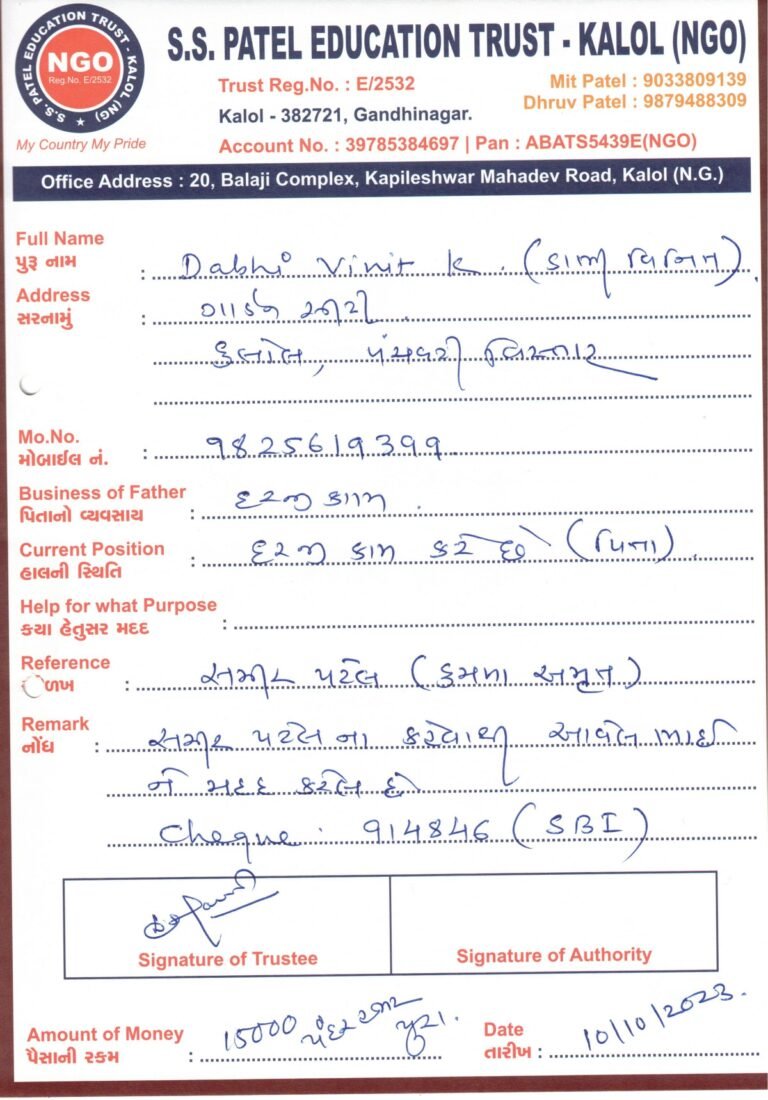 S.S. PATEL EDUCATION TRUST - KALOL (NG)
NGO
Reg.No. E/2532
My Country My Pride
S.S. PATEL EDUCATION TRUST - KALOL (NGO)
Trust Reg.No. : E/2532
Mit Patel : 9033809139
Kalol - 382721, Gandhinagar.
Dhruv Patel : 9879488309
Account No. : 39785384697 | Pan : ABATS5439E(NGO)
Office Address : 20, Balaji Complex, Kapileshwar Mahadev Road, Kalol (N.G.)
Full Name
પુરૂ નામ : Dabhi Vinit K. (ડાભી વિનિત)
Address
સરનામું :
કલોલ, પંચવટી વિસ્તાર
Mo.No.
મોબાઈલ નં. : 9825619399
Business of Father
પિતાનો વ્યવસાય : દરજી કામ
Current Position
હાલની સ્થિતિ : દરજી કામ કરે છે (પિતા)
Help for what Purpose
કયા હેતુસર મદદ :
Reference
ળખ : પટેલ ( અમૃત)
Remark
નોંધ : પટેલ ના કહેવાથી આવેલ ભાઈ
ને મદદ કરેલ છે
Cheque. 914846 (SBI)
Signature of Trustee
Signature of Authority
Amount of Money
પૈસાની રકમ : 15000 પંદર હજાર પુરા.
Date
તારીખ : 10/10/2023.